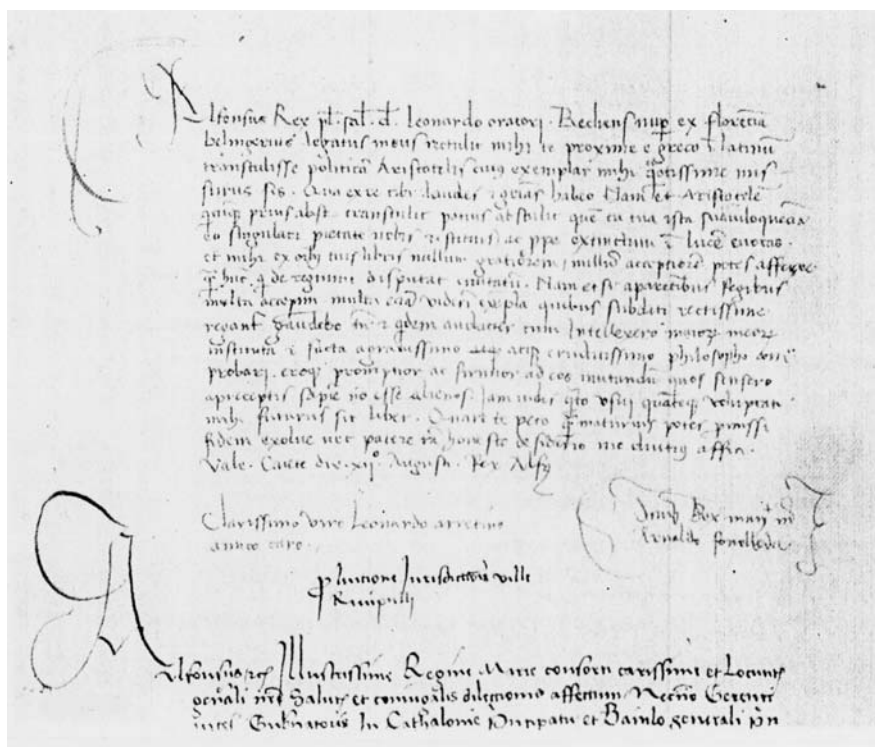 Alfonsus Rex pl. sal. d. Leonardo oratori. Rediens nup ex florencia
belingerius legatus meus retulit mihi te proxime e greco ī latinū
transtulisse politicā Aristotelis cuius exemplar mihi missurus
sis. Qua ex re tibi laudes z gr̄as habeo Nam et Aristotelē
transtulit potius abstulit quē tu tua ista suauiloquencia
singulari pietate nobis restituis ac ppe extinctum ī lucē euocas.
et mihi ex oībꝫ tuis libris nullum graciorem, nullūq acceptiorē potes afferre
qͣ hūc qͥ de regimine disputat ciuitatū. Nam etsi a parētibus Regibus
multa accepim multa eciā vidim exēpla quibus subditi rectissime
regant gaudebo tn̄ z qͥdem audacter cum Intellexero maioꝝ meoꝝ
instituta z facta a grauissimo atqꝫ eruditissimo philosopho
probari. eroqꝫ promptior ac firmior ad eos imitandū quos sensero
a preceptis sapiē nō esse alienos. Iam vides qͣto vsui quāteqꝫ voluptati
mihi futurus sit liber. Quare te peto qͣ maturius potes promissi
fidem exolue nec patere vt honesto desiderio me diutius affici.
Vale. Caiete die .xij°. Augusti. Rex Alfꝰ
Clarissimo viro Leonardo arretino
amico caro.
Dn̄s Rex man^t m^i
Arnaldo fonolleda
p luicione Iurisdictionis ville
Riuipulli
Alfonsus z c̃ Illustrissime Regine Marie consorti carissime et Locumt̄
gen̄ali nr̄e Salutē et coniugalis dilectionis affectum Necnō Gerenti
vices Gubernatoris In Cathalonie Principatu et Baiulo generali